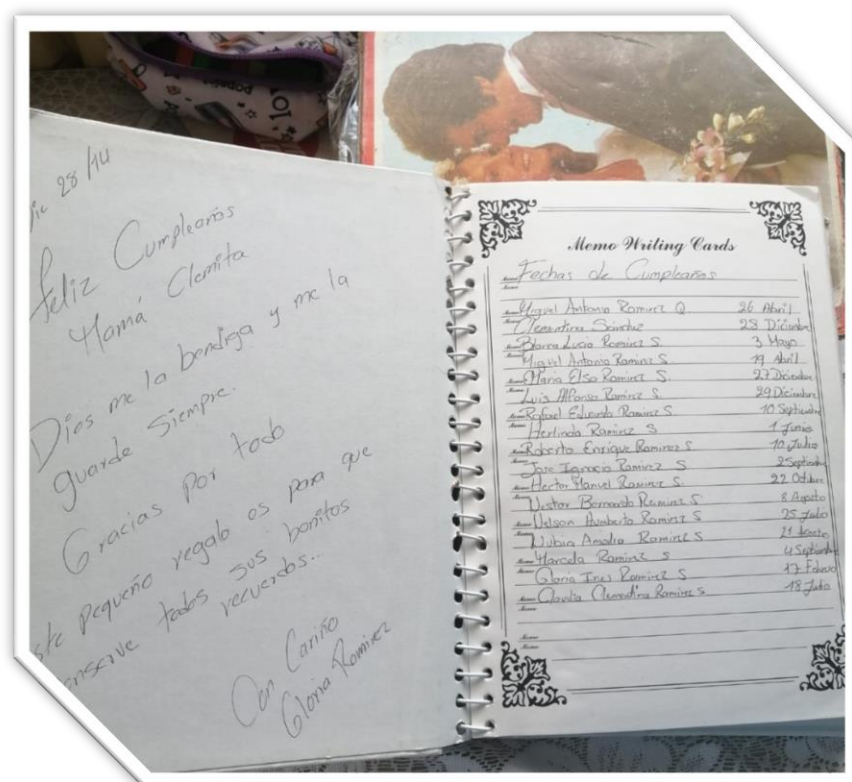 Dic 28/14
Feliz Cumpleaños
Mamá Clemita
Dios me la bendiga y me la
guarde siempre.
Gracias por todo
este pequeño regalo es para que
conserve todos sus bonitos
recuerdos..
Con Cariño
Gloria Ramirez
Memo Writing Cards
Fechas de Cumpleaños
Miguel Antonio Ramirez Q. 26 Abril
Clementina Sánchez 28 Diciembre
Blanca Lucia Ramirez S. 3 Mayo
Miguel Antonio Ramirez S. 19 Abril
Maria Elsa Ramirez S. 27 Diciembre
Luis Alfonso Ramirez S. 29 Diciembre
Rafael Eduardo Ramirez S. 10 Septiembre
Herlinda Ramirez S 1 Junio
Roberto Enrique Ramirez S 10 Julio
Jose Ignacio Ramirez S 2 Septiembre
Hector Manuel Ramirez S. 22 Octubre
Nestor Bernardo Ramirez S 8 Agosto
Nelson Humberto Ramirez S 25 Julio
Nubia Amalia Ramirez S 21 Agosto
Marcela Ramirez S 4 Septiembre
Gloria Ines Ramirez S 17 Febrero
Claudia Clementina Ramirez S 18 Julio